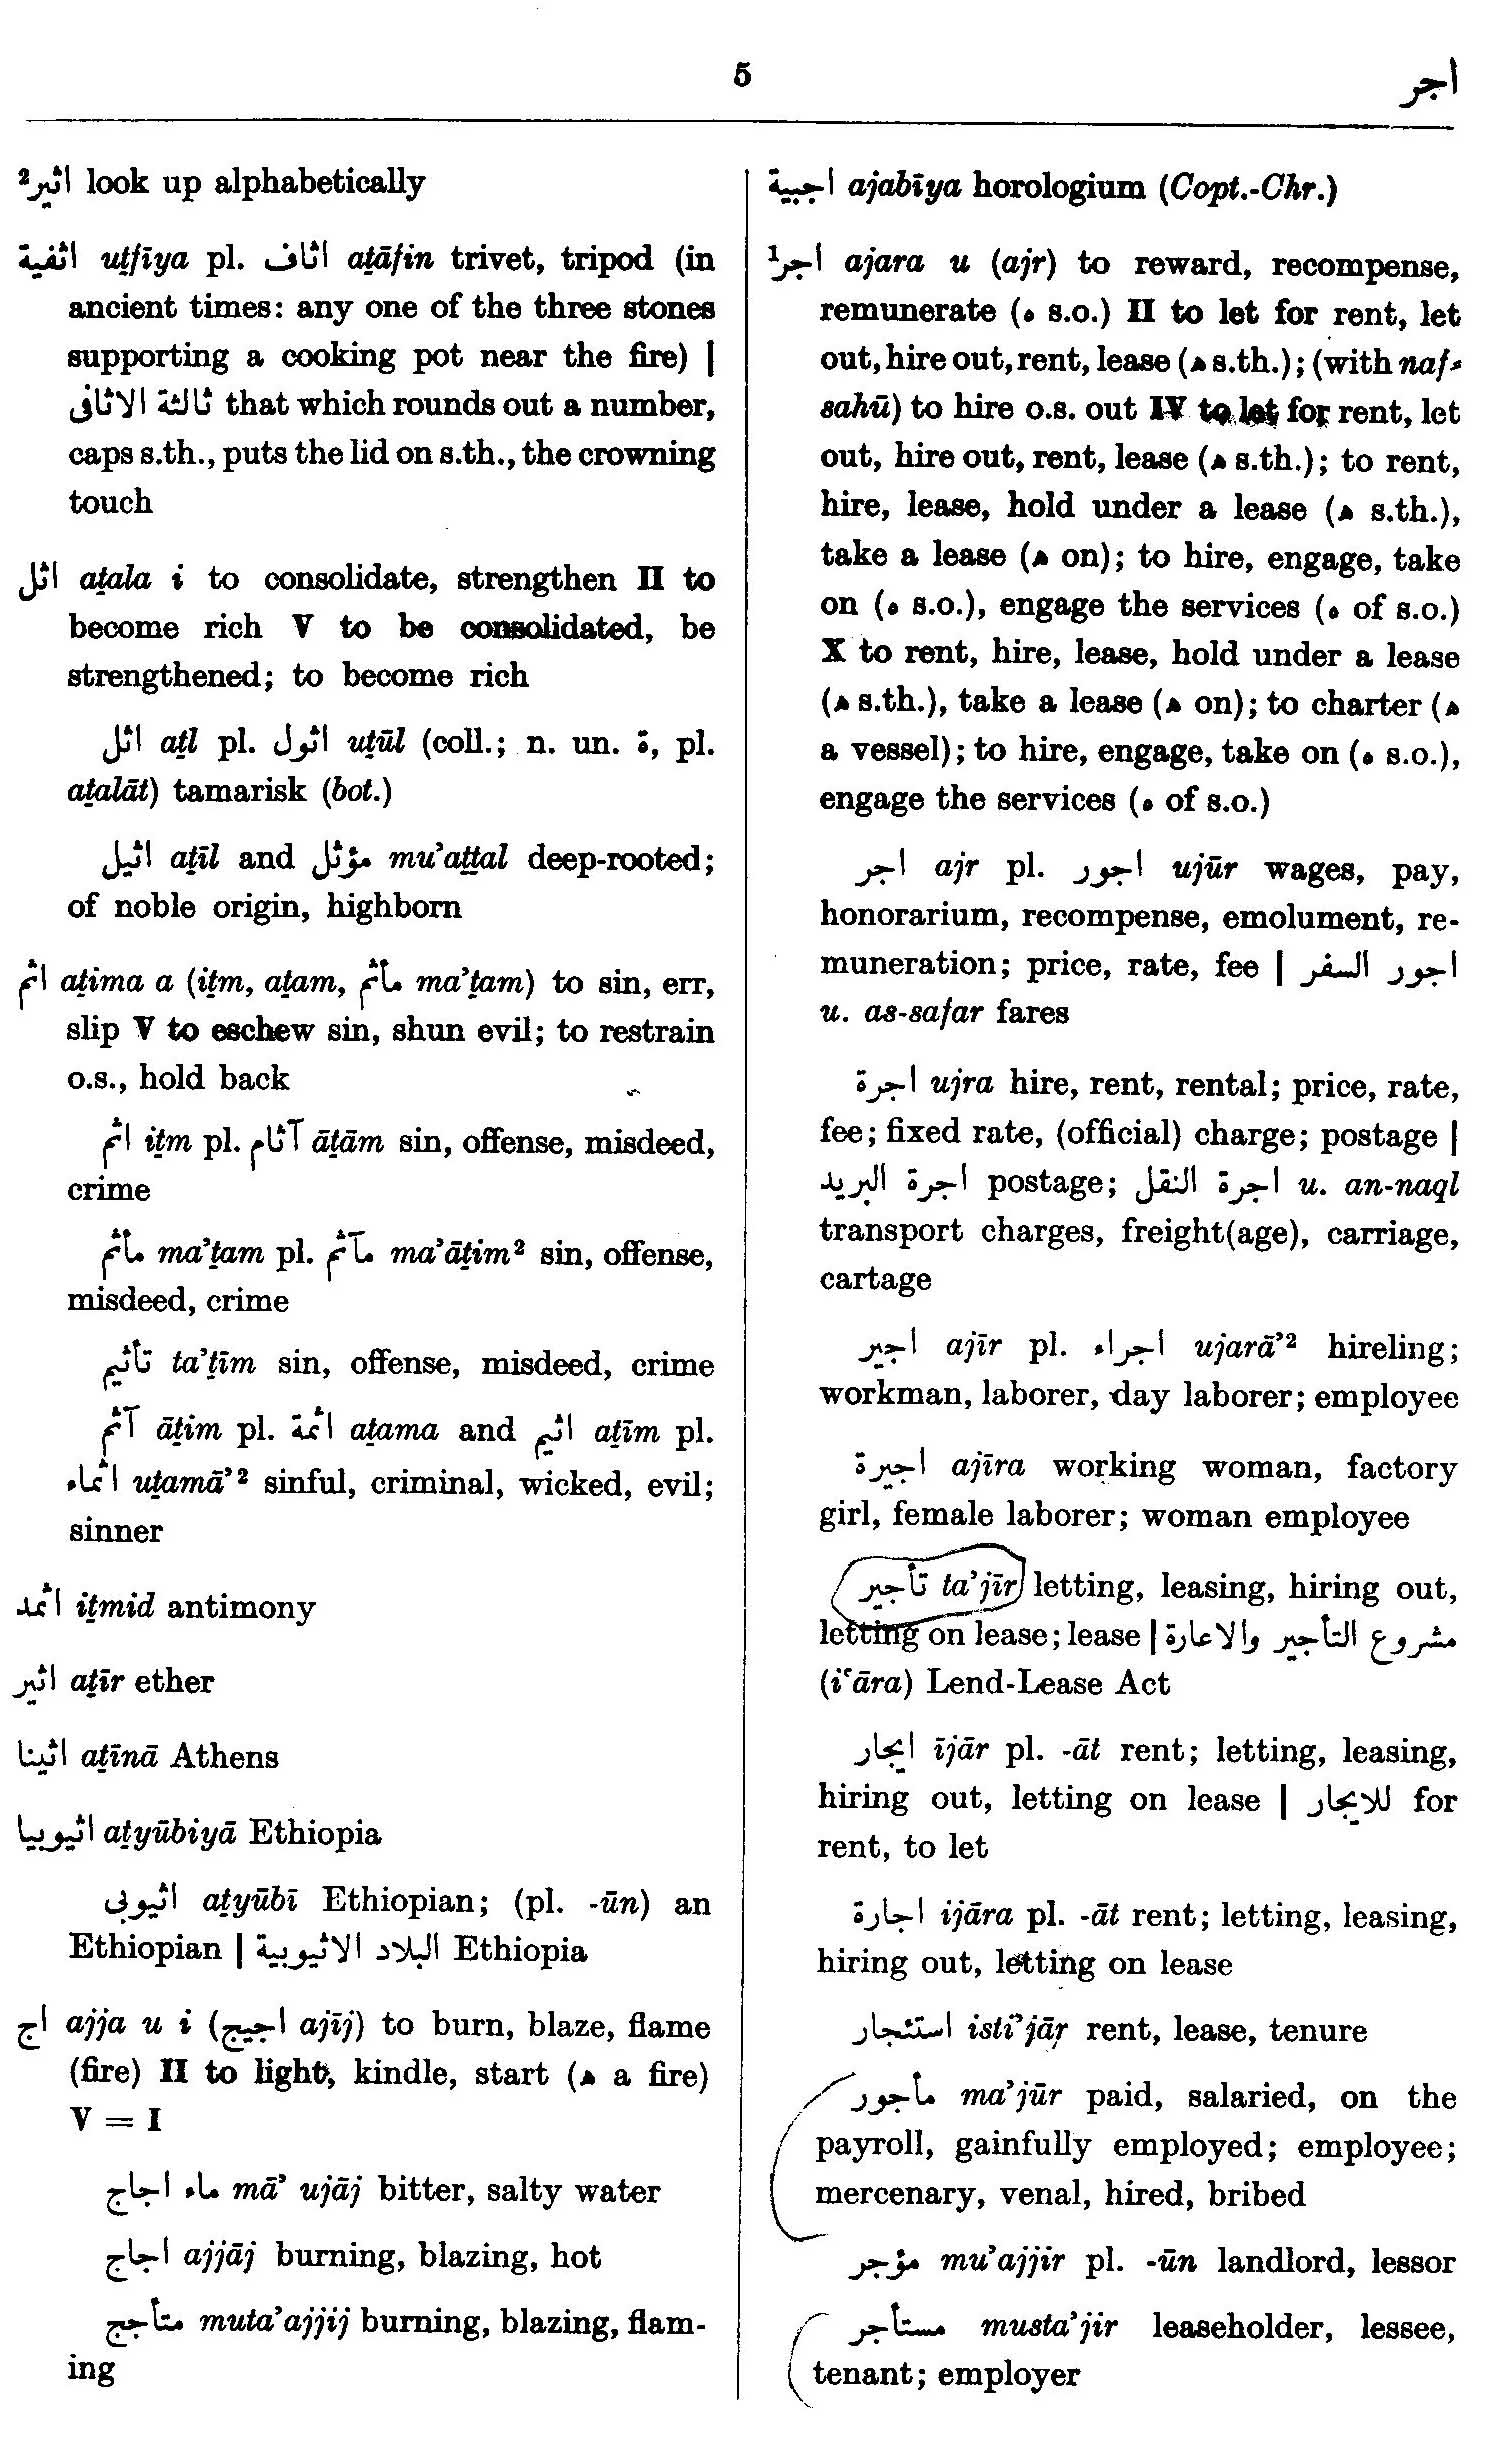 5
اجر
اثير² look up alphabetically
اثفية uṯfīya pl. اثاف aṯāfin trivet, tripod (in
ancient times: any one of the three stones
supporting a cooking pot near the fire) |
ثالثة الاثافى that which rounds out a number,
caps s.th., puts the lid on s.th., the crowning
touch
اثل aṯala i to consolidate, strengthen II to
become rich V to be consolidated, be
strengthened; to become rich
اثل aṯl pl. اثول uṯūl (coll.; n. un. ة, pl.
aṯalāt) tamarisk (bot.)
اثيل aṯīl and مؤثل mu’aṯṯal deep-rooted;
of noble origin, highborn
اثم aṯima a (iṯm, aṯam, مأثم ma’ṯam) to sin, err,
slip V to eschew sin, shun evil; to restrain
o.s., hold back
اثم iṯm pl. آثام āṯām sin, offense, misdeed,
crime
مأثم ma’ṯam pl. مآثم ma’āṯim² sin, offense,
misdeed, crime
تأثيم ta’ṯīm sin, offense, misdeed, crime
آثم āṯim pl. اثمة aṯama and اثيم aṯīm pl.
اثماء uṯamā’² sinful, criminal, wicked, evil;
sinner
اثمد iṯmid antimony
اثير aṯīr ether
اثينا aṯīnā Athens
اثيوبيا aṯyūbiyā Ethiopia
اثيوبى aṯyūbī Ethiopian; (pl. -ūn) an
Ethiopian | البلاد الاثيوبية Ethiopia
اج ajja u i (اجيج ajīj) to burn, blaze, flame
(fire) II to light, kindle, start (ﻫ a fire)
V = I
ماء اجاج mā’ ujāj bitter, salty water
اجاج ajjāj burning, blazing, hot
متأجج muta’ajjij burning, blazing, flam-
ing
اجبية ajabīya horologium (Copt.-Chr.)
اجر¹ ajara u (ajr) to reward, recompense,
remunerate (ه s.o.) II to let for rent, let
out, hire out, rent, lease (ﻫ s.th.); (with naf-
sahū) to hire o.s. out IV to let for rent, let
out, hire out, rent, lease (ﻫ s.th.); to rent,
hire, lease, hold under a lease (ﻫ s.th.),
take a lease (ﻫ on); to hire, engage, take
on (ه s.o.), engage the services (ه of s.o.)
X to rent, hire, lease, hold under a lease
(ﻫ s.th.), take a lease (ﻫ on); to charter (ﻫ
a vessel); to hire, engage, take on (ه s.o.),
engage the services (ه of s.o.)
اجر ajr pl. اجور ujūr wages, pay,
honorarium, recompense, emolument, re-
muneration; price, rate, fee | اجور السفر
u. as-safar fares
اجرة ujra hire, rent, rental; price, rate,
fee; fixed rate, (official) charge; postage |
اجرة البريد postage; اجرة النقل u. an-naql
transport charges, freight(age), carriage,
cartage
اجير ajīr pl. اجراء ujarā’² hireling;
workman, laborer, day laborer; employee
اجيرة ajīra working woman, factory
girl, female laborer; woman employee
تأجير ta’jīr letting, leasing, hiring out,
letting on lease; lease | مشروع التأجير والاعارة
(i‘āra) Lend-Lease Act
ايجار ījār pl. -āt rent; letting, leasing,
hiring out, letting on lease | للايجار for
rent, to let
اجارة ijāra pl. -āt rent; letting, leasing,
hiring out, letting on lease
استئجار isti’jār rent, lease, tenure
مأجور ma’jūr paid, salaried, on the
payroll, gainfully employed; employee;
mercenary, venal, hired, bribed
مؤجر mu’ajjir pl. -ūn landlord, lessor
مستأجر musta’jir leaseholder, lessee,
tenant; employer